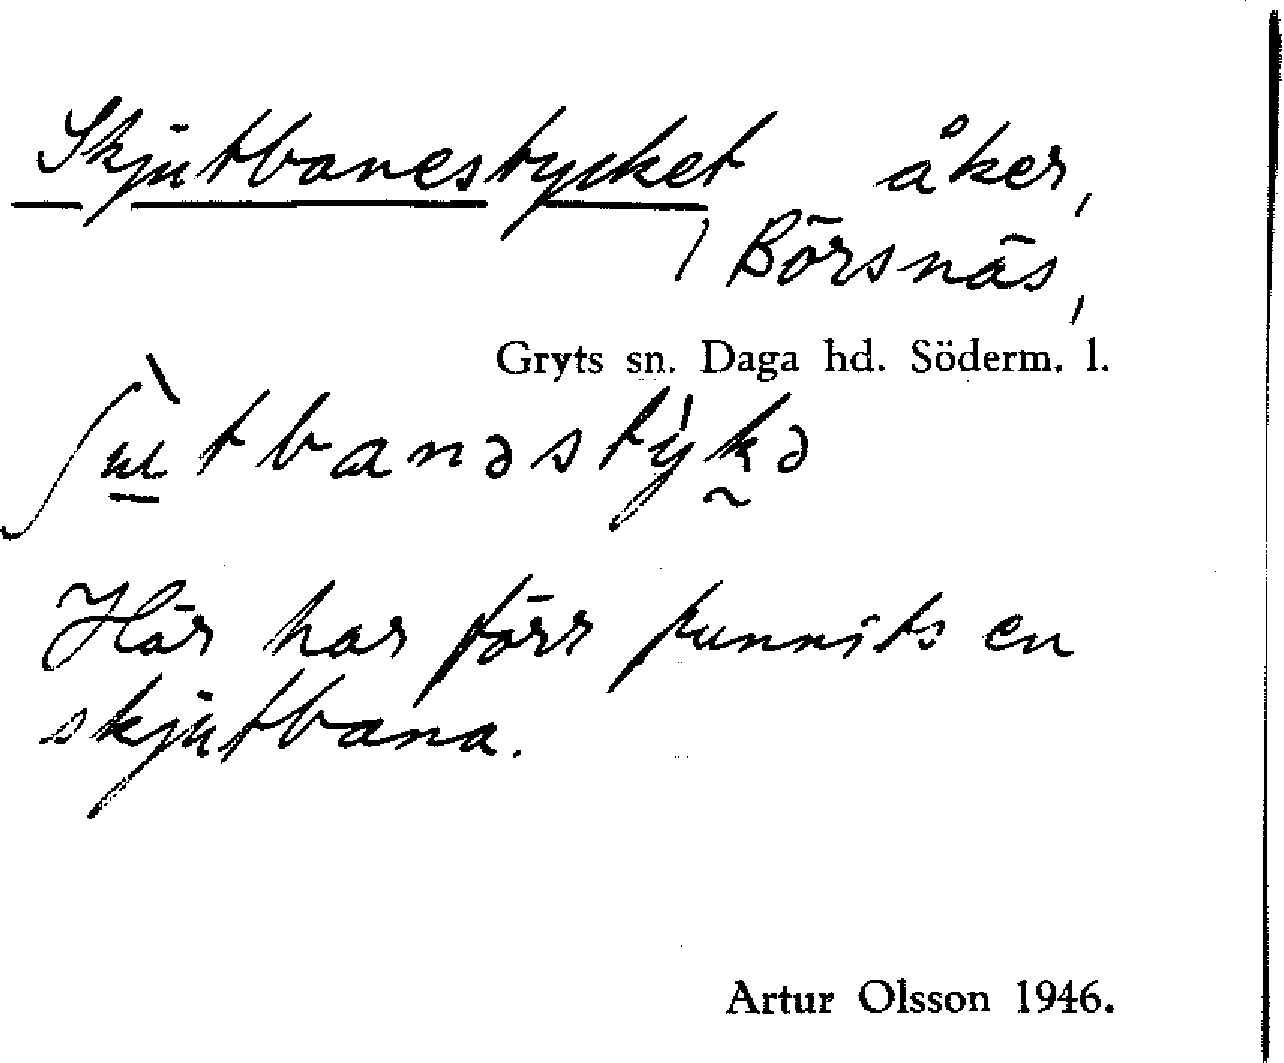 Skjutbanestycket åker,
Börsnäs,
Gryts sn. Daga hd. Söderm. l.
ʃùtbanəstýkə
Här har förr funnits en
skjutbana.
Artur Olsson 1946.